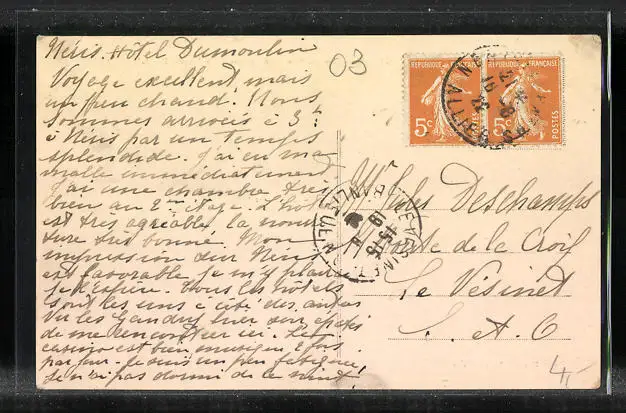 Néris. Hôtel Dumoulin
Voyage excellent mais
un peu chaud. Nous
sommes arrivés à 3h
à Néris par un temps
splendide. J'ai eu ma
malle immédiatement
j'ai une chambre très
bien au 2me étage. L'hôtel
est très agréable la nourri
ture très bonne. Mon
impression sur Néris
est favorable je m'y plairai
je l'espère. Tous les hôtels
sont les uns à côté des autres
Vu les Gandry hier soir
de me rencontrer ici. Le
casino est bien musique 2 fois
par jour. Je suis un peu fatiguée,
je n'ai pas dormi de la nuit!
03
REPUBLIQUE FRANÇAISE
5c
POSTES
REPUBLIQUE FRANÇAISE
5c
POSTES
Mr Jules Deschamps
de la Croix
Le Vésinet
S. et O
15-15
19
4,-